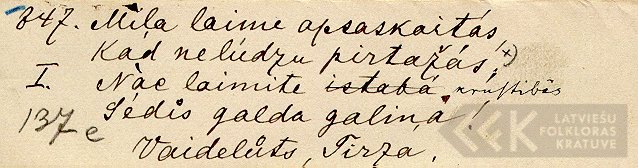 847. Mīļa laime apsaskaitās,
Kad nelūdzu pirtažās, x)
I. Nāc laimīte istabā krustibās
137 e Sēdīs galda galiņa!
Vaidelūts, Tirza.
LATVIEŠU
FOLKLORAS
KRATUVE